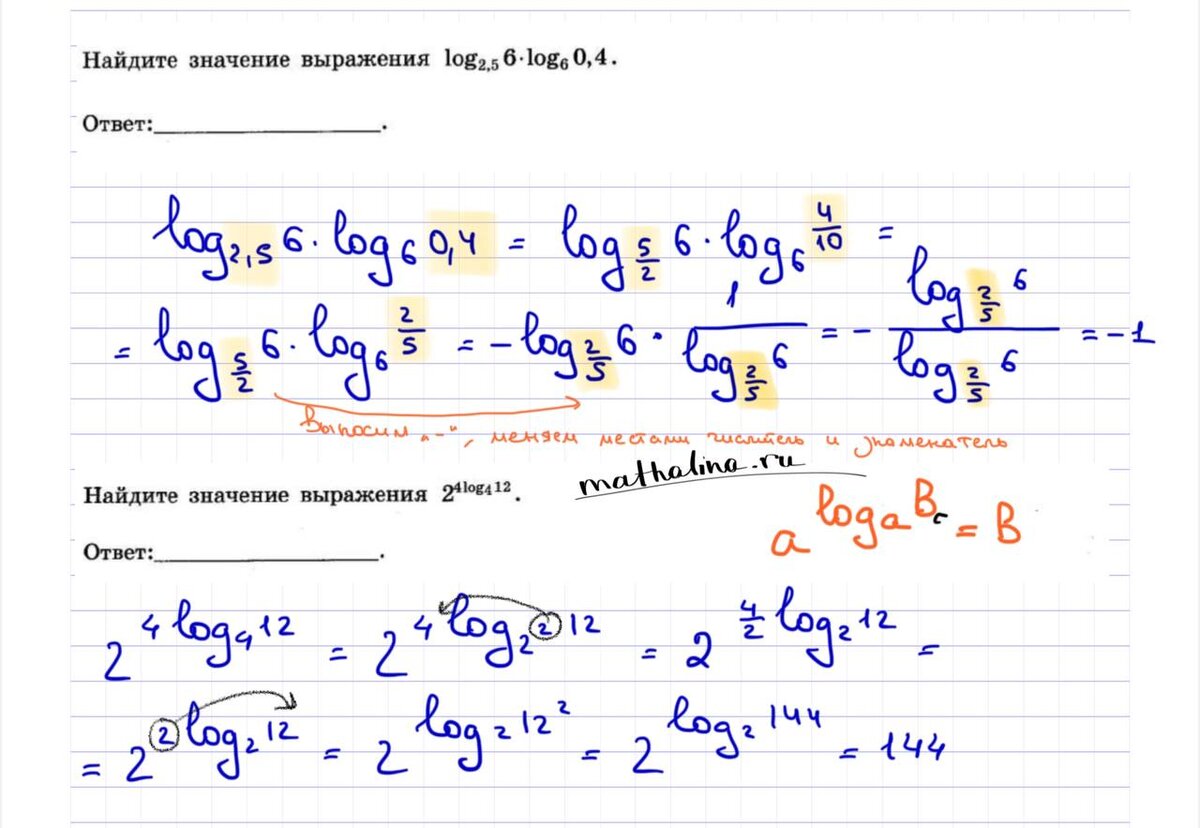 Найдите значение выражения log₂,₅ 6·log₆ 0,4.
Ответ:____________________.
log₂,₅ 6 · log₆ 0,4 = log_{5/2} 6 · log₆ 4/10 =
= log_{5/2} 6 · log₆ 2/5 = - log_{2/5} 6 · 1/(log_{2/5} 6) = - (log_{2/5} 6)/(log_{2/5} 6) = -1
Выносим „-“, меняем местами числитель и знаменатель
mathalina.ru
Найдите значение выражения 2^{4log₄12}.
a^{log_a B} = B
Ответ:____________________.
2^{4 log₄ 12} = 2^{4 log_{2²} 12} = 2^{4/2 log₂ 12} =
= 2^{2 log₂ 12} = 2^{log₂ 12²} = 2^{log₂ 144} = 144